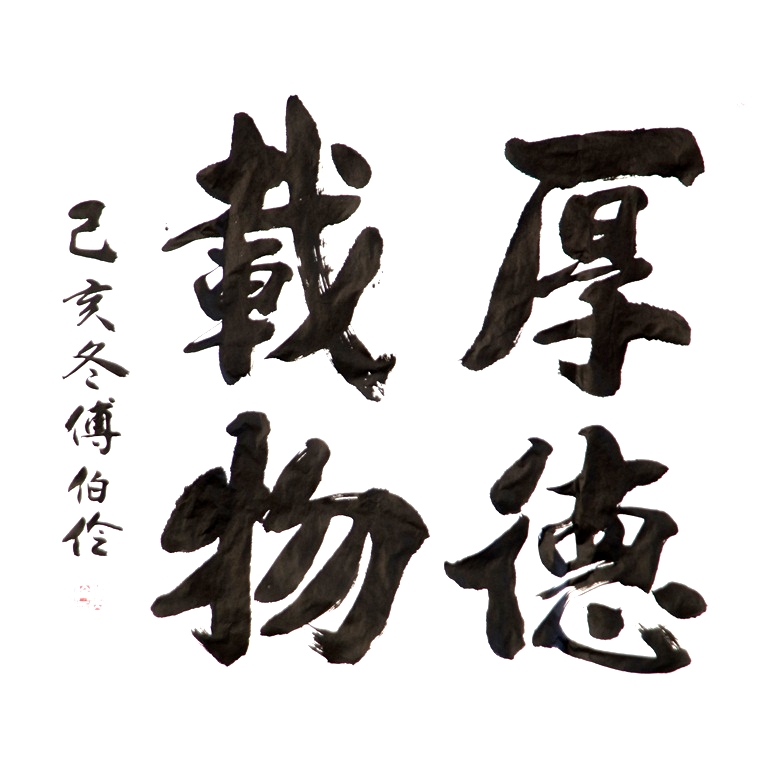 厚德
載物
己亥冬傅伯伶